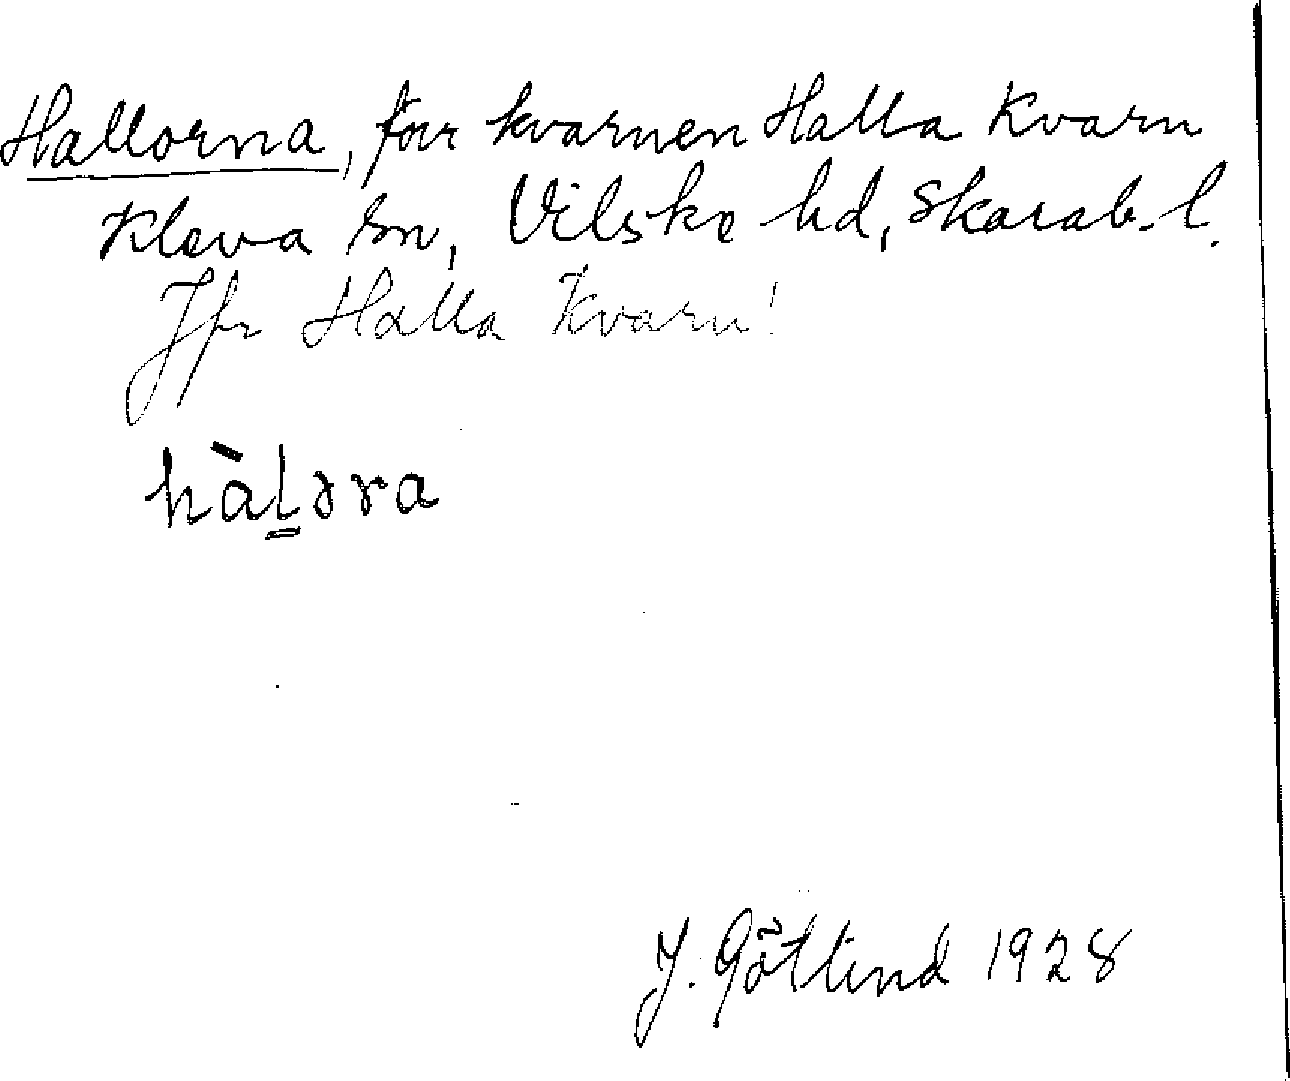 Hallorna, för kvarnen Halla Kvarn
Kleva sn, Vilske hd, Skarab. l.
Jfr Halla Kvarn!
hàl̠ɔra
J. Götlind 1928